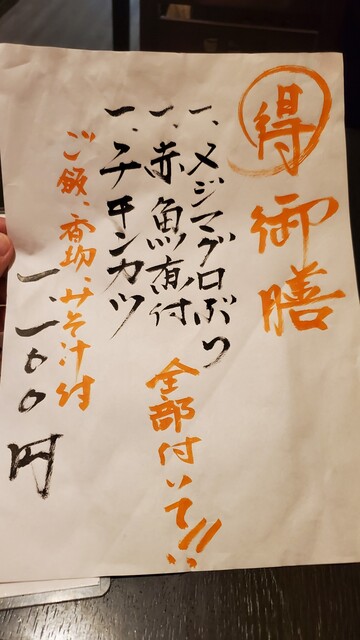 得 御膳
一、メジマグロぶつ
一、赤魚煮付
一、チキンカツ
全部付いて!!
ご飯、香物、みそ汁付
一、一〇〇円